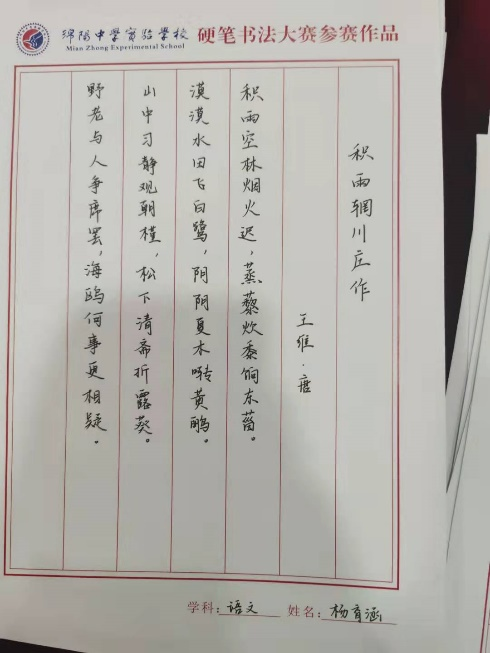 绵阳中学实验学校
Mian Zhong Experimental School
硬笔书法大赛参赛作品
积雨辋川庄作
王维·唐
积雨空林烟火迟，蒸藜炊黍饷东菑。
漠漠水田飞白鹭，阴阴夏木啭黄鹂。
山中习静观朝槿，松下清斋折露葵。
野老与人争席罢，海鸥何事更相疑。
学科：语文 姓名：杨育涵